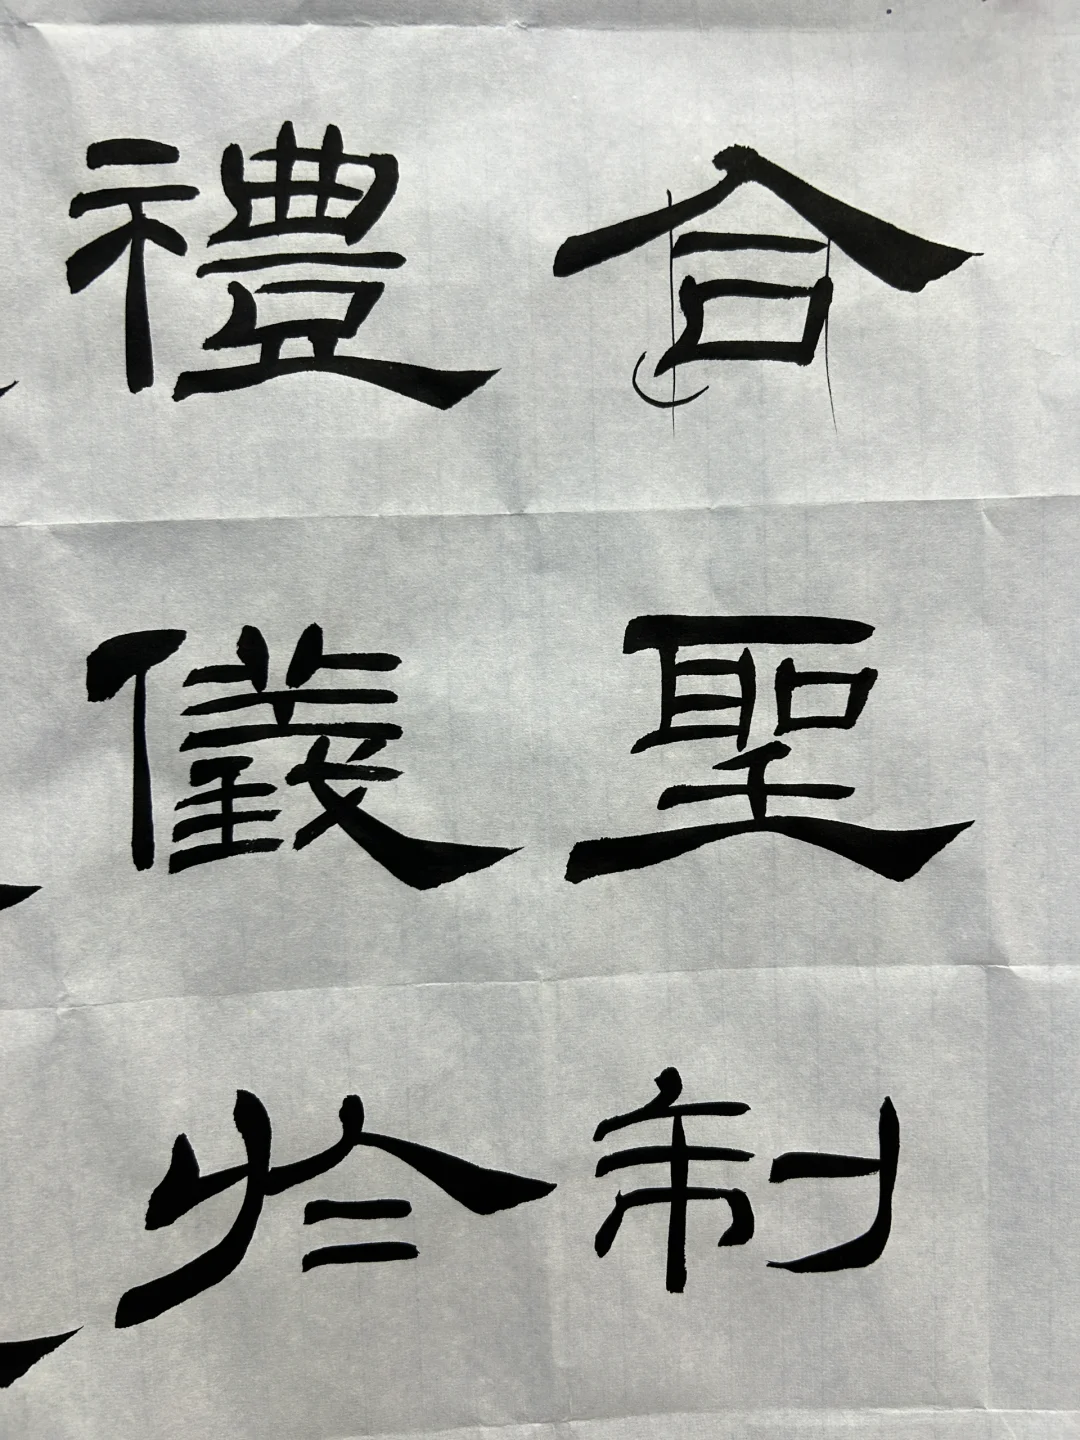 合聖制
禮儀於